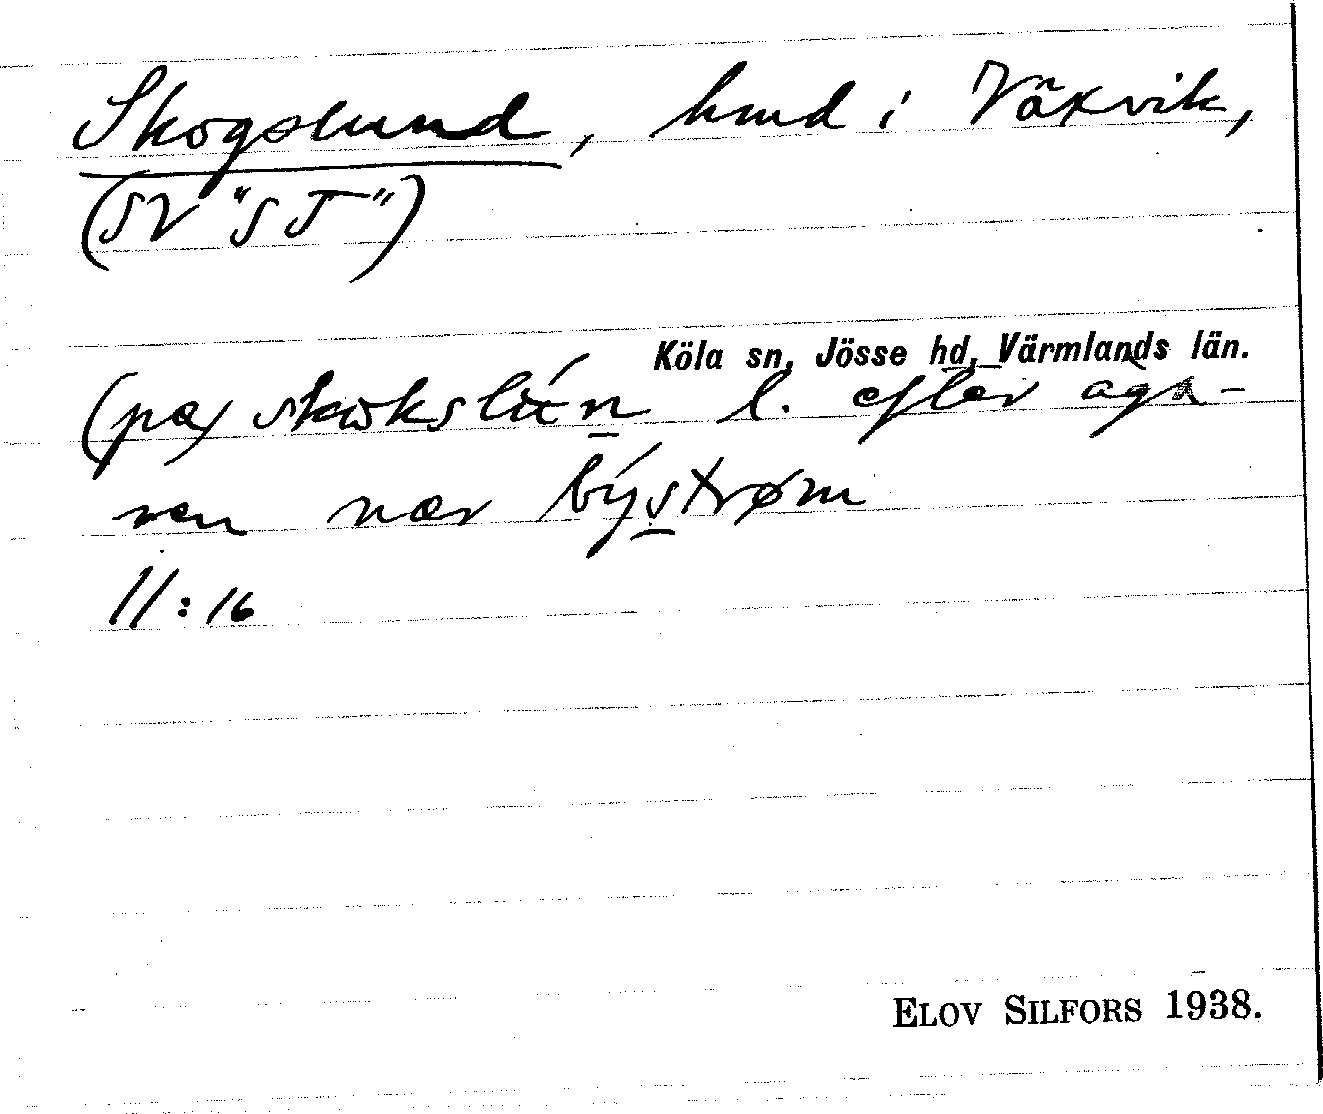 Skogslund, hmd i Växvik,
(SV "ST")
Köla sn, Jösse hd, Värmlands län.
(pa) skoksl n l. efter äga-
ren var býstrøm
11:16
ELOV SILFORS 1938.